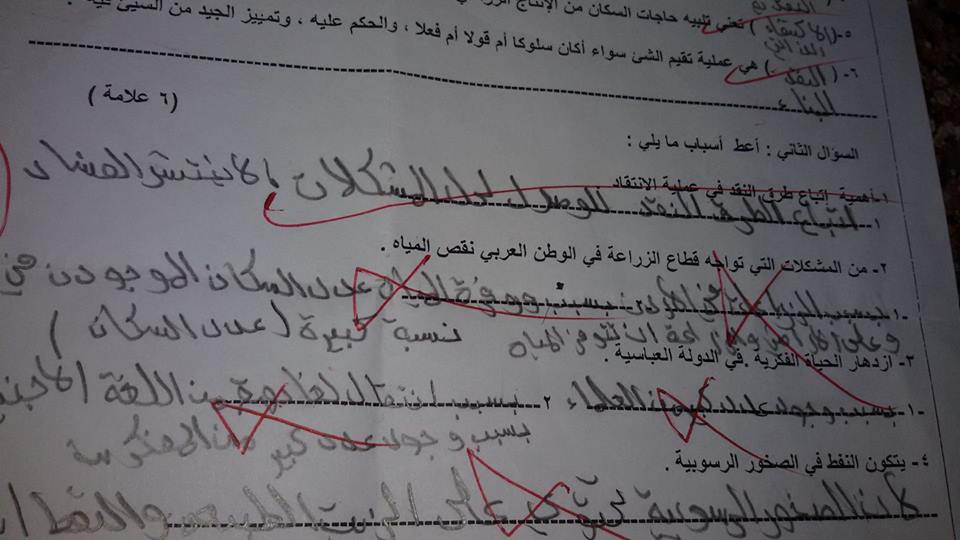 النقد بع
٥- ( الاكتفاء ) تعني تلبيه حاجات السكان من الإنتاج الزر
الذاتي
٦- ( النقد ) هي عملية تقيم الشئ سواء أكان سلوكا أم قولا أم فعلا ، والحكم عليه ، وتمييز الجيد من السيئ فيه
البناء
( ٦ علامة )
السؤال الثاني : أعط أسباب ما يلي :
١- أهمية إتباع طرق النقد في عملية الانتقاد
١- اتباع الطرق للنقد للوصول لحل المشكلات ، لا ينتشر الفساد
٢- من المشكلات التي تواجه قطاع الزراعة في الوطن العربي نقص المياه .
١- بسبب الزيادة في ٢- بسبب وفرة المياه عدد السكان الموجودين في
نسبة كبيرة ( عدد السكان )
٣- ازدهار الحياة الفكرية في الدولة العباسية .
١- بسبب وجود عدد كبير من العلماء ٢- بسبب انتقال من اللغة الاجنبي
بسبب وجود عدد كبير من المفكرين
٤- يتكون النفط في الصخور الرسوبية .
لأن الصخور الرسوبية تحتوي على الزيت الطبيعي والنفط